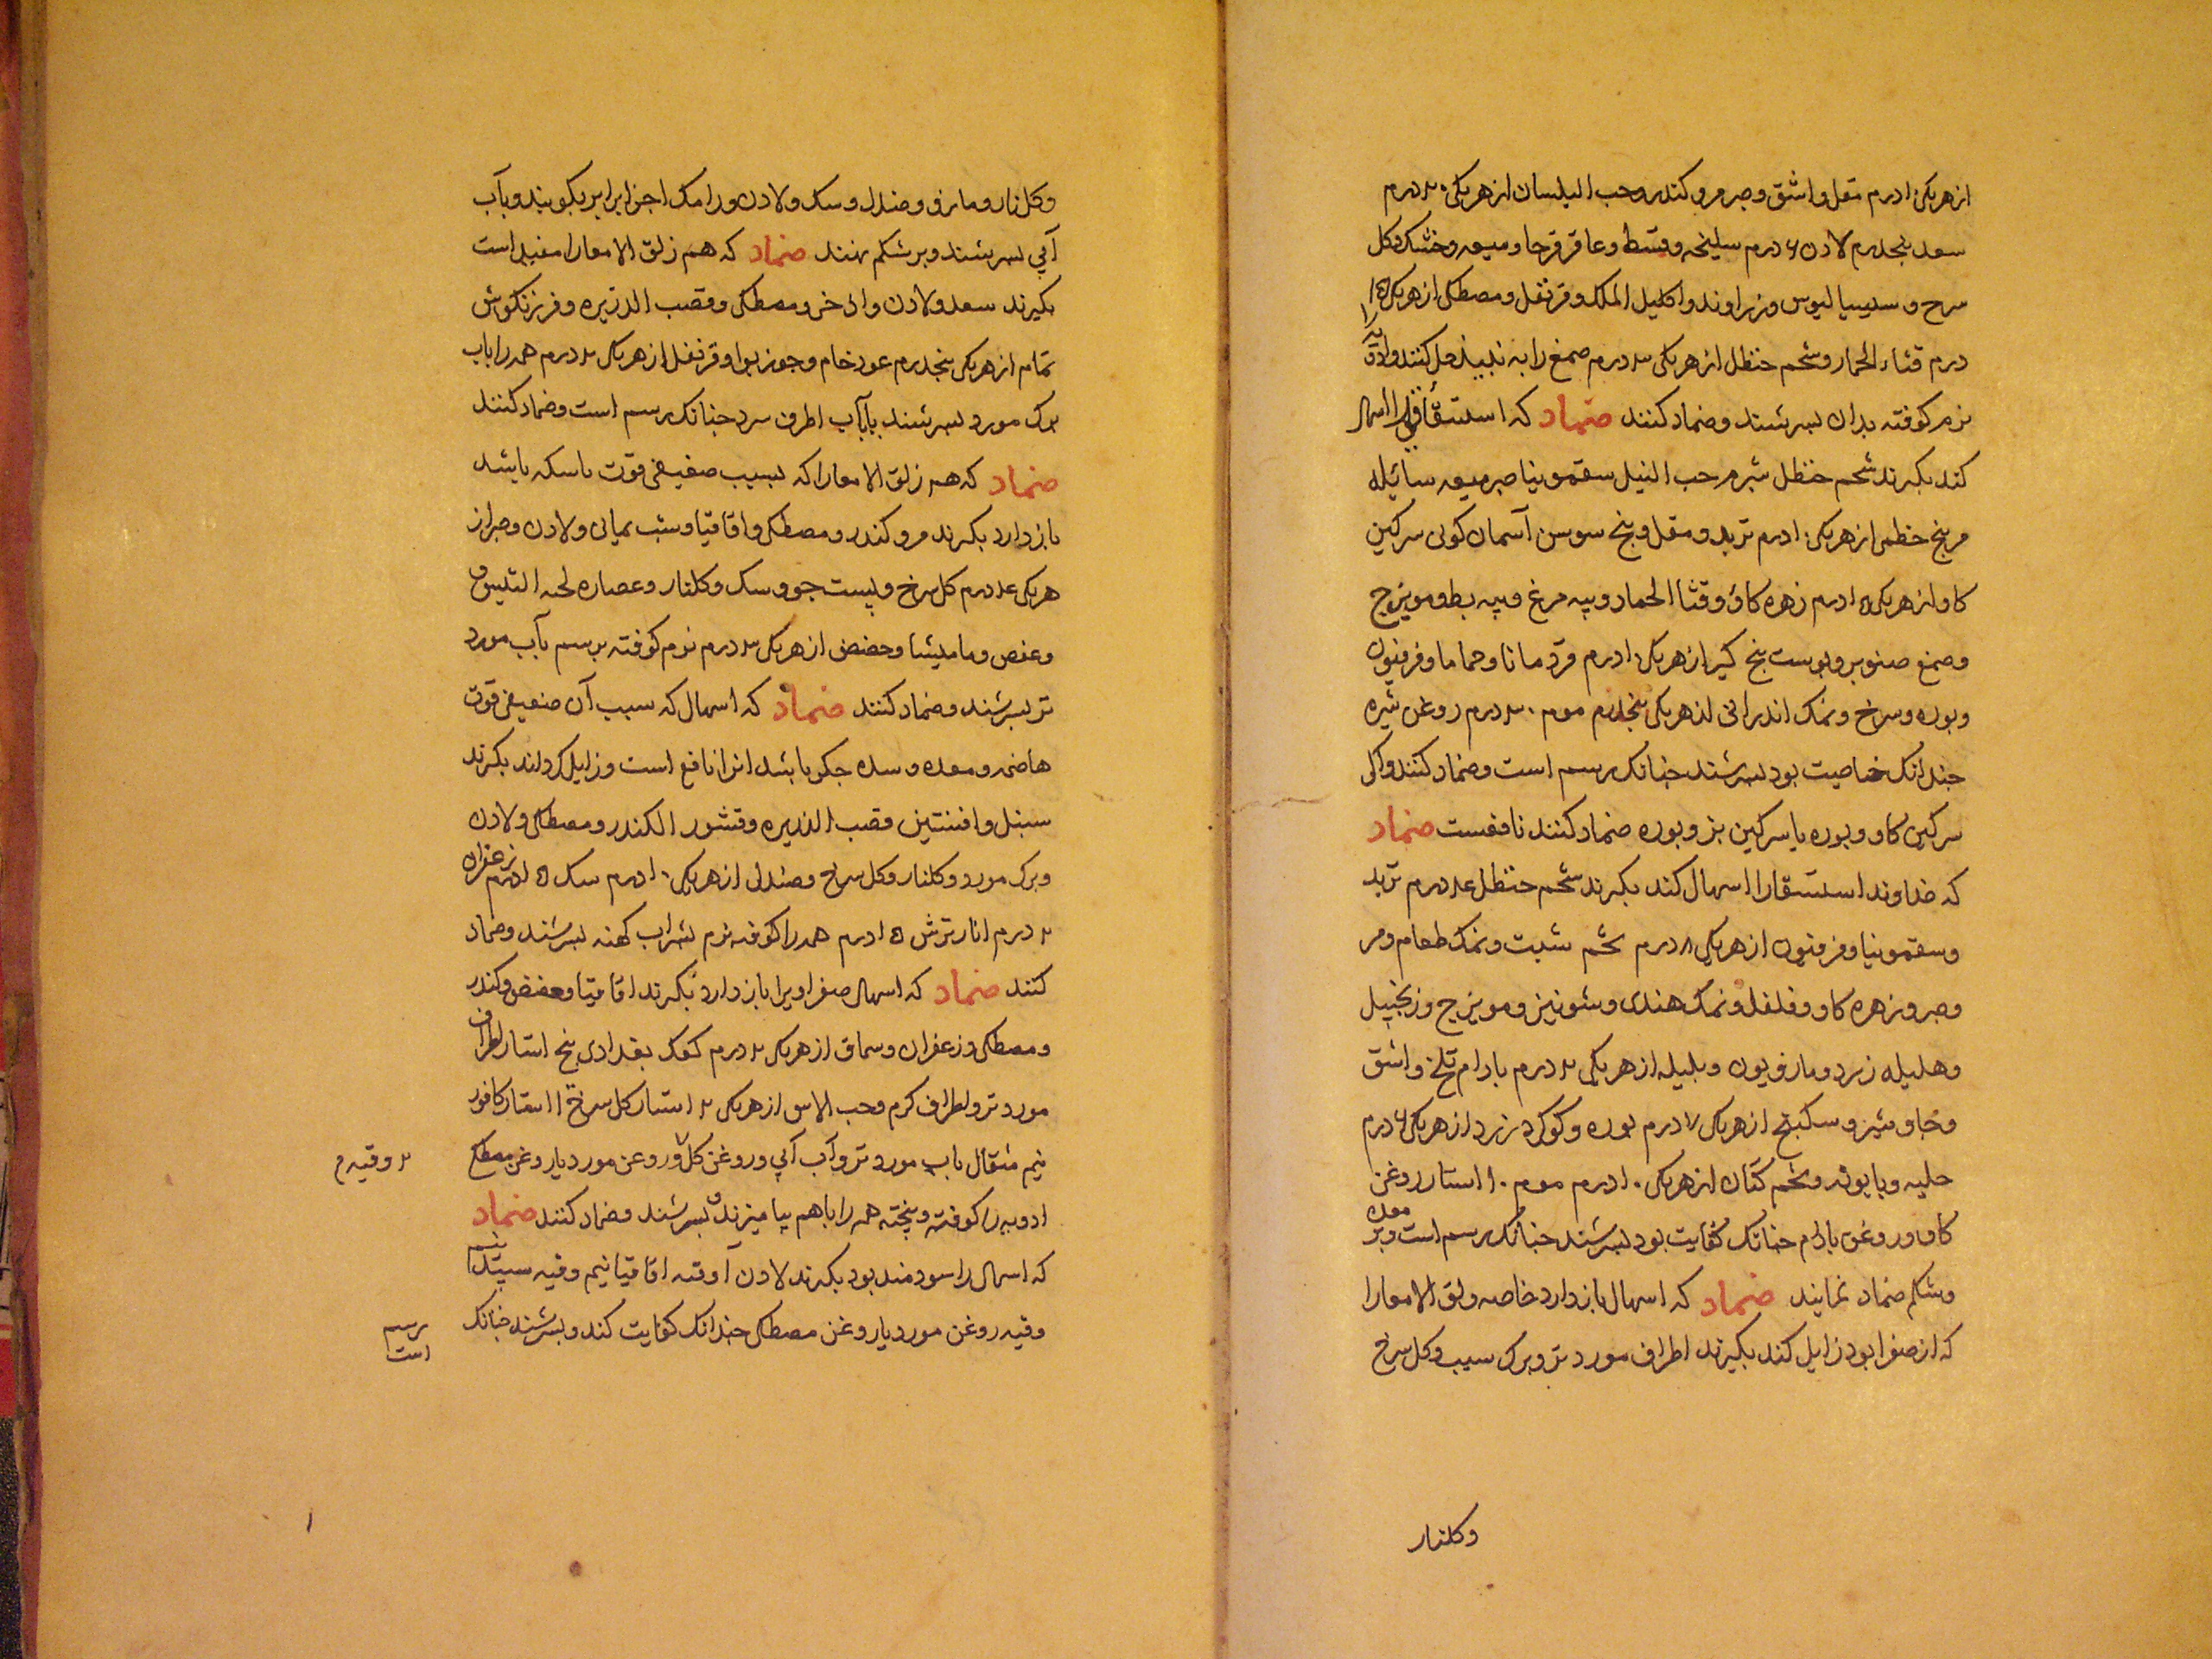 از هر یکی ۱۰ درم مقل و اشق و صبر و مر و کندر و حب البلسان از هر یکی ۲۰ درم
سعد پنجدرم لادن ۶ درم سلیخه و قسط و عاقرقرحا و میعه و خشک و کل
سرخ و سیسالیوس و زراوند و اکلیل الملک و قرنفل و مصطکی از هر یک ۱۵
درم قثاء الحمار و شحم حنظل از هر یکی ۳ درم صمغ را به نبیذ حل کنند و ادویه را
نرم کوفته بدان بسرشند و ضماد کنند ضماد که استسقا زقی را اسهال
کند بکیرند شحم حنظل شبرم حب النیل سقمونیا صبر میعه سائله
مر بیخ خطمی از هر یکی ۱۰ درم تربد و مقل و بیخ سوسن آسمان کونی سرکین
کاو از هر یکی ۱۵ درم زهره کاو و قثا الحمار و پیه مرغ و پیه بط و مویزج
و صمغ صنوبر و پوست بیخ کبر از هر یک ۱۰ درم قردمانا و حماما و فرفیون
و بوره و سرخ و نمک اندرانی از هر یکی پنجدرم موم ۳۰ درم روغن شیره
چندانک خاصیت بود بسرشند چنانک رسم است و ضماد کنند و اکر
سرکین کاو و بوره یا سرکین بز و بوره ضماد کنند نافعست ضماد
که خداوند استسقا را اسهال کند بکیرند شحم حنظل ۴ درم تربد
و سقمونیا و فرفیون از هر یکی ۸ درم تخم شبت و نمک طعام و مر
و صبر و زهره کاو و فلفل و نمک هندی و شونیز و مویزج و زنجبیل
و هلیله زرد و مازریون و بلیله از هر یکی ۳ درم بادام تلخ و اشق
و جاوشیر و سکبینج از هر یک ۷ درم بوره و کوکرد زرد از هر یکی ۶ درم
حلبه و بابونه و تخم کتان از هر یک ۱۰ درم موم ۱۰ استار روغن
کاو و روغن بادام چنانک کفایت بود بسرشند چنانک رسم است و بر معده
و شکم ضماد نمایند ضماد که اسهال باز دارد خاصه زلق الامعا را
که از صفرا بود زایل کند بکیرند اطراف مورد تر و برک سیب و کل سرخ
وکلنار
و کلنار و مازو و صندل و سک و لادن و رامک اجزا برابر بکوبند و بآب
آبی بسرشند و بر شکم نهند ضماد که هم زلق الامعا را مفید است
بکیرند سعد و لادن و اذخر و مصطکی و قصب الذریره و مرزنکوش
تمام از هر یکی پنجدرم عود خام و جوز بوا و قرنفل از هر یک ۳ درم همه را باب
برک مورد بسرشند یا بآب اطرف سرد چنانک رسم است و ضماد کنند
ضماد که هم زلق الامعا را که بسبب ضعیفی قوت ماسکه باشد
باز دارد بکیرند مر و کندر و مصطکی و اقاقیا و شب یمانی و لادن و صبر از
هر یکی ۴ درم کل سرخ و پست جو و سک و کلنار و عصاره لحیه التیس
و عفص و مامیشا و حضض از هر یک ۳ درم نرم کوفته برسم بآب مورد
تر بسرشند و ضماد کنند ضماد که اسهال که سبب آن ضعیفی قوت
هاضمه و معده و سده جکر باشد انرا نافع است و زایل کرداند بکیرند
سنبل و افسنتین و قصب الذریره و قشور الکندر و مصطکی و لادن
و برک مورد و کلنار و کل سرخ و صندل از هر یکی ۱۰ درم سک ۱۵ درم زعفران
۳ درم انار ترش ۱۵ درم همه را کوفته نرم بشراب کهنه بسرشند و ضماد
کنند ضماد که اسهال صفراوی را باز دارد بکیرند اقاقیا و عفص و کندر
و مصطکی و زعفران و سماق از هر یک ۳ درم کعک بغدادی پنج استار اطراف
مورد تر و اطراف کرم و حب الاس از هر یک ۳ استار کل سرخ ۱۱ استار کافور
نیم مثقال باب مورد تر و آب آبی و روغن کل و روغن مورد یا روغن مصطکی ۳ وقیه
ادویه را کوفته و پخته همه را باهم بیامیزند و بسرشند و ضماد کنند ضماد
که اسهال را سودمند بود بکیرند لادن ۱ وقیه اقاقیا نیم وقیه سپید نیم
وقیه روغن مورد یا روغن مصطکی چندانک کفایت کند و بسرشند چنانک رسم است